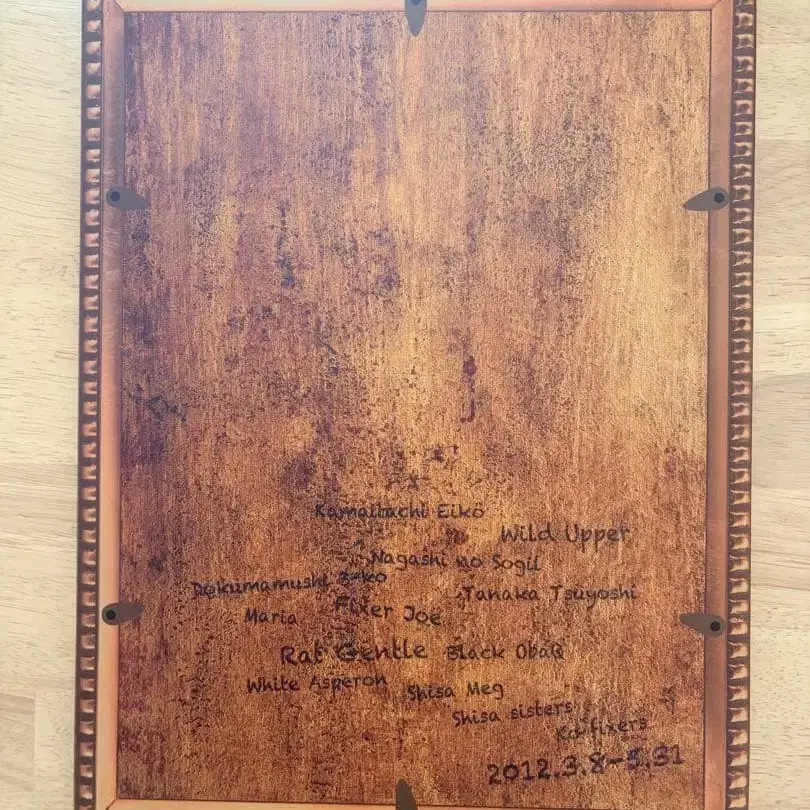 Kamaitachi Eiko
Wild Upper
Nagashi no Sogil
Dokumamushi 3-ko
Tanaka Tsuyoshi
Maria
Fixer Joe
Rat Gentle
Black ObaQ
White Asperon
Shisa Meg
Shisa sisters
fixers
2012.3.8-5.31